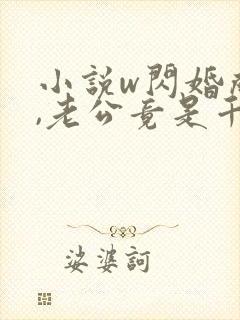 小説w閃婚
,老公竟是千
娑婆訶